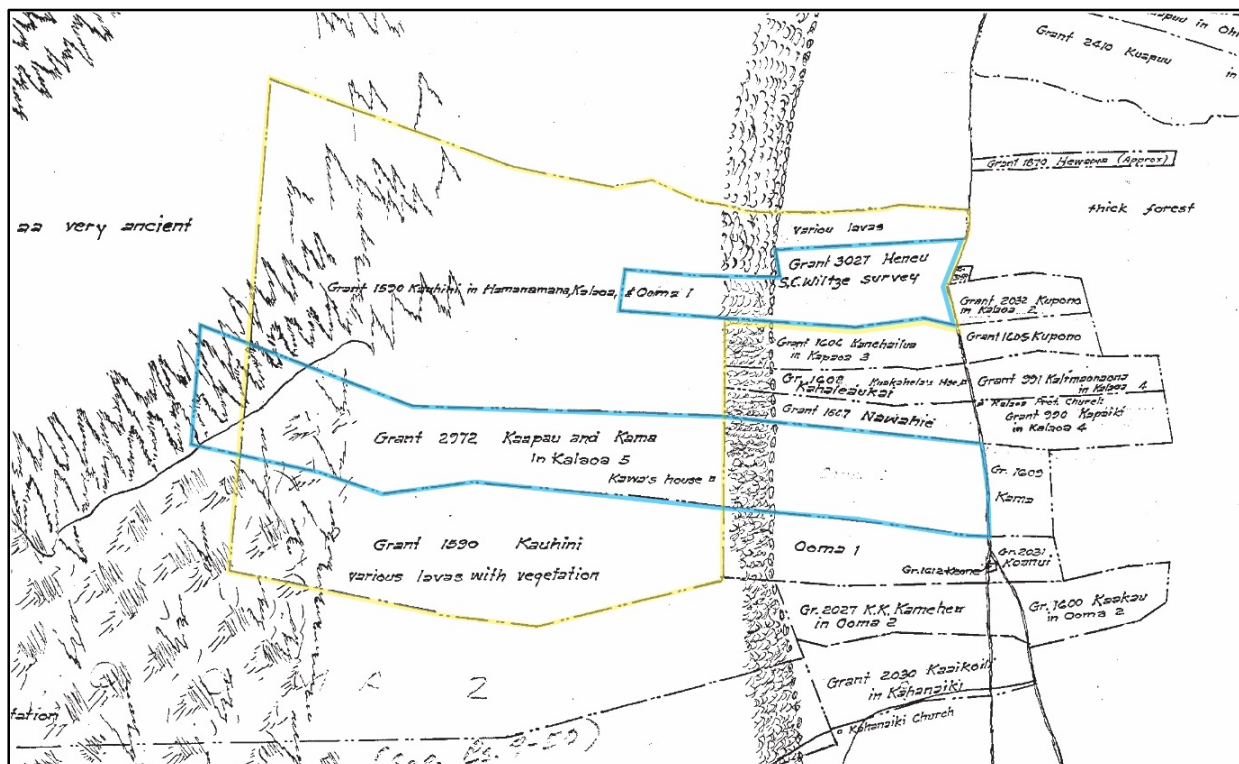 in Oh
Grant 2410 Kuapuu
in
Grant 1870 Hewaawa (Approx)
thick forest
aa very ancient
variou lavas
Grant 3027 Heneu
S.C. Wiltze survey
Grant 1590 Kauhini in Hamanamana, Kalaoa, & Ooma 1
Grant 2032 Kupono
in Kalaoa 2
Grant 1605 Kupono
Grant 1606 Kanehailua
in Kapaoa 3
Gr. 1608
Kahaleaukai
Grant 991
in Kalaoa 4
Kalaoa Prot. Church
Grant 990 Kapaiki
in Kalaoa 4
Nawahie
Grant 2972 Kaapau and Kama
in Kalaoa 5
Kawa's house
Gr. 1609
Kama
Grant 1590 Kauhini
various lavas with vegetation
Ooma 1
Gr. 2031
Koanui
Gr. 1612 Keone
Gr. 2027 K.K. Kameheu
in Ooma 2
Gr. 1600 Kaakau
in Ooma 2
2
Grant 2030 Kaaikoili
in Kahanaiki
Kahanaiki Church
tation